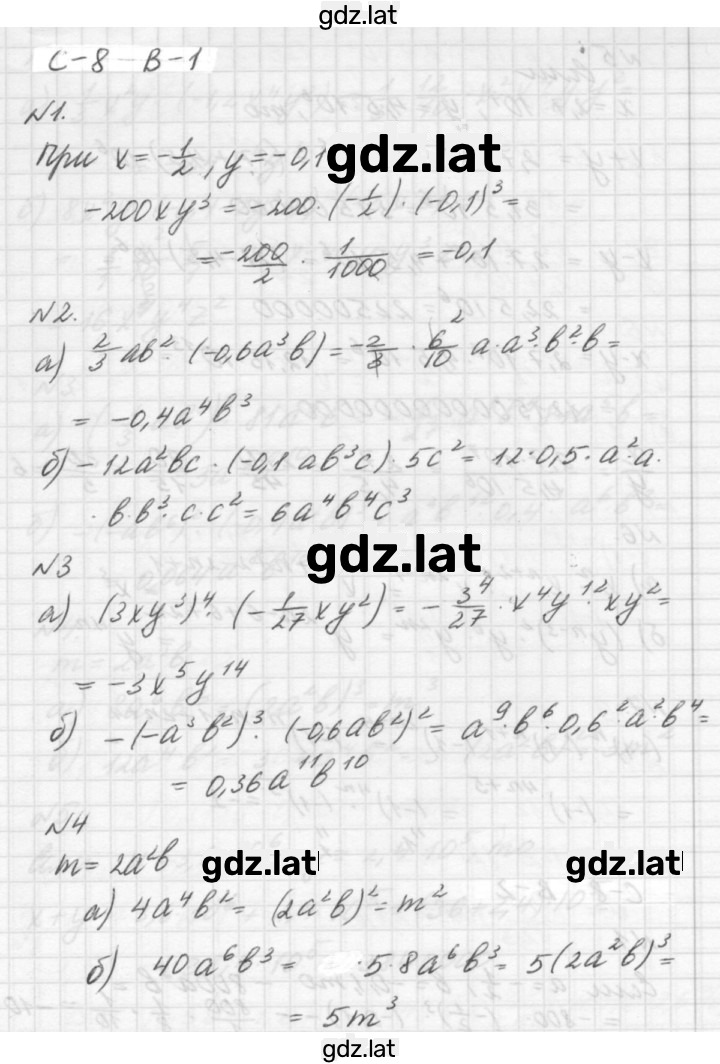 gdz.lat
С-8-В-1
№1.
при x = -1/2, y = -0,1 gdz.lat
-200xy³ = -200·(-1/2)·(-0,1)³ =
= -200/2 · 1/1000 = -0,1
№2.
а) 2/3 ab²·(-0,6a³b) = -2/3 · 6²/10 a·a³·b²·b =
= -0,4a⁴b³
б) -12a²bc·(-0,1ab³c)·5c² = 12·0,5·a²·a·
·b·b³·c·c² = 6a⁴b⁴c³
gdz.lat
№3
а) (3xy³)⁴·(-1/27 xy²) = -3⁴/27 · x⁴y¹²·xy² =
= -3x⁵y¹⁴
б) -(-a³b²)³·(-0,6ab²)² = a⁹·b⁶·0,6²·a²·b⁴ =
= 0,36a¹¹b¹⁰
№4
m = 2a²b gdz.lat gdz.lat
а) 4a⁴b² = (2a²b)² = m²
б) 40a⁶b³ = ·5·8a⁶b³ = 5(2a²b)³
= 5m³
gdz.lat